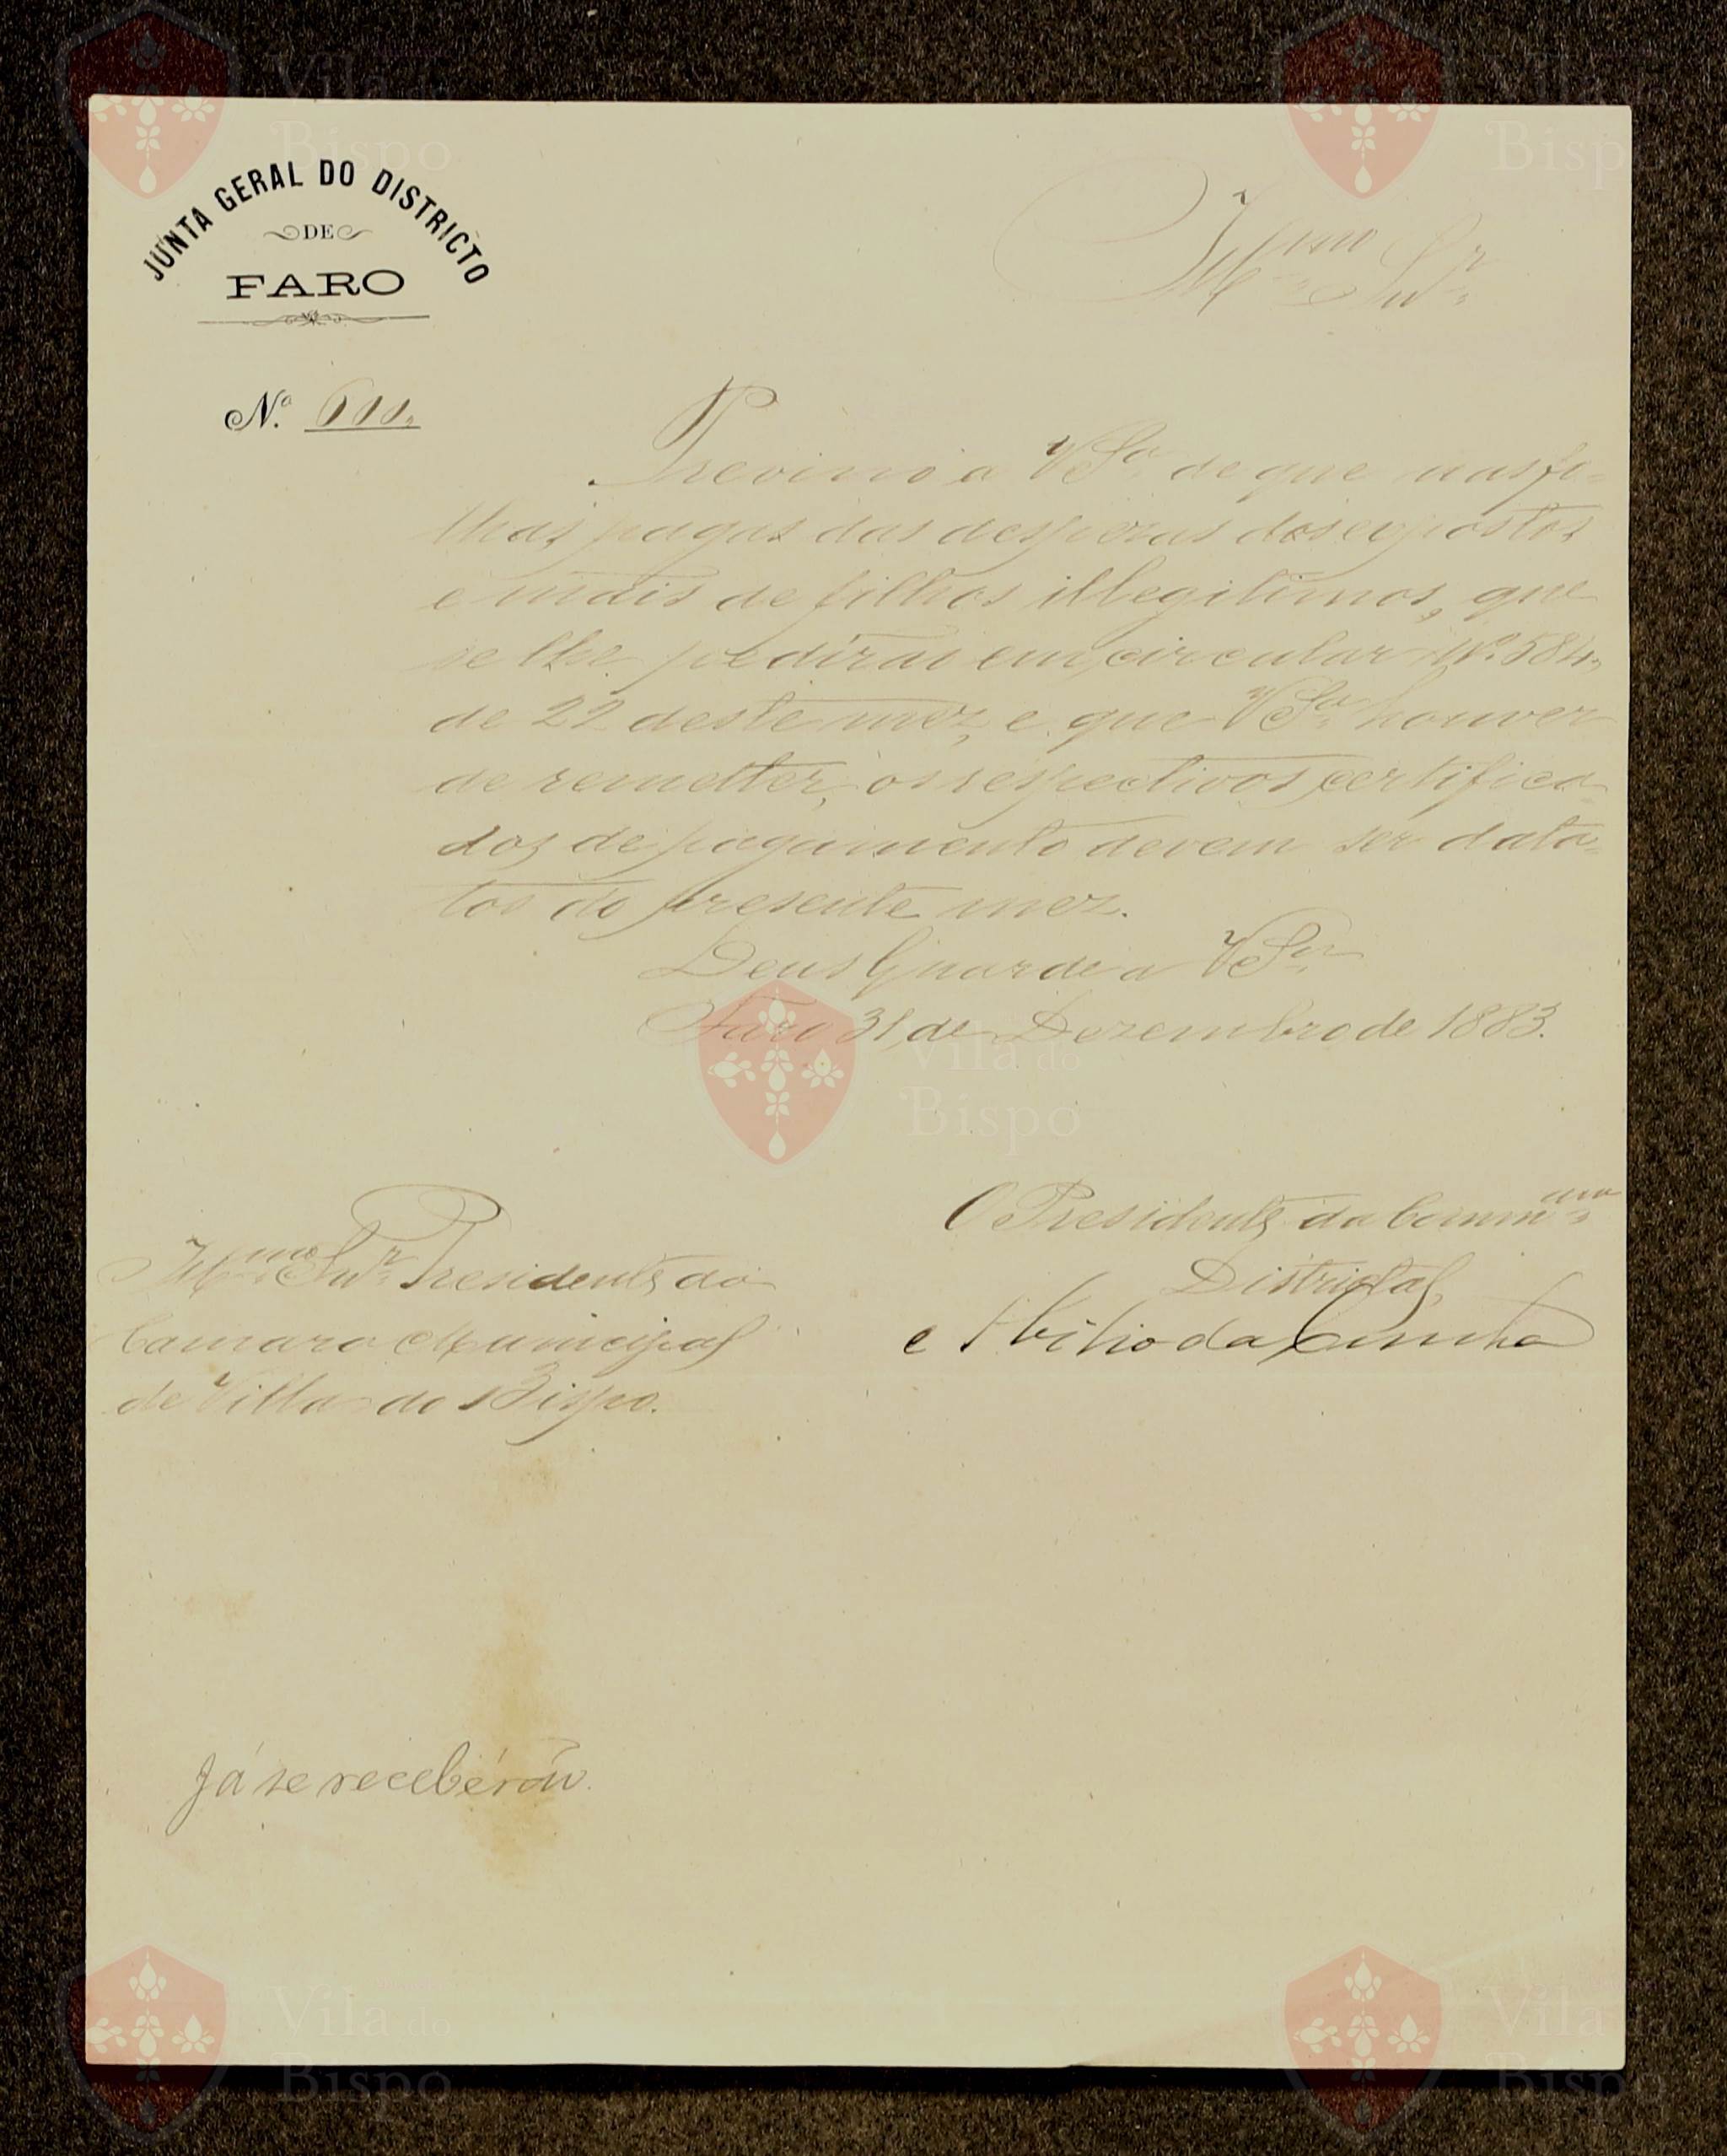 JUNTA GERAL DO DISTRICTO
DE
FARO
N.º 611.
Illmo Snr.
Previno a VSª de que nas fo-
lhas pagas das despezas dos expostos
e mais de filhos illegitimos, que
se lhe pedirão em circular Nº 584,
de 22 deste mez, e que VSª houver
de remetter, os respectivos certifica-
dos de pagamento devem ser data-
dos do presente mez.
Deus Guarde a VSª
Faro 31, de Dezembro de 1883.
O Presidente da Commam
Districtal,
Abilio da Cunha
Illmo Snr. Presidente da
Camara Municipal
de Villa do Bispo.
Já se recebérão.
Vila do
Bispo